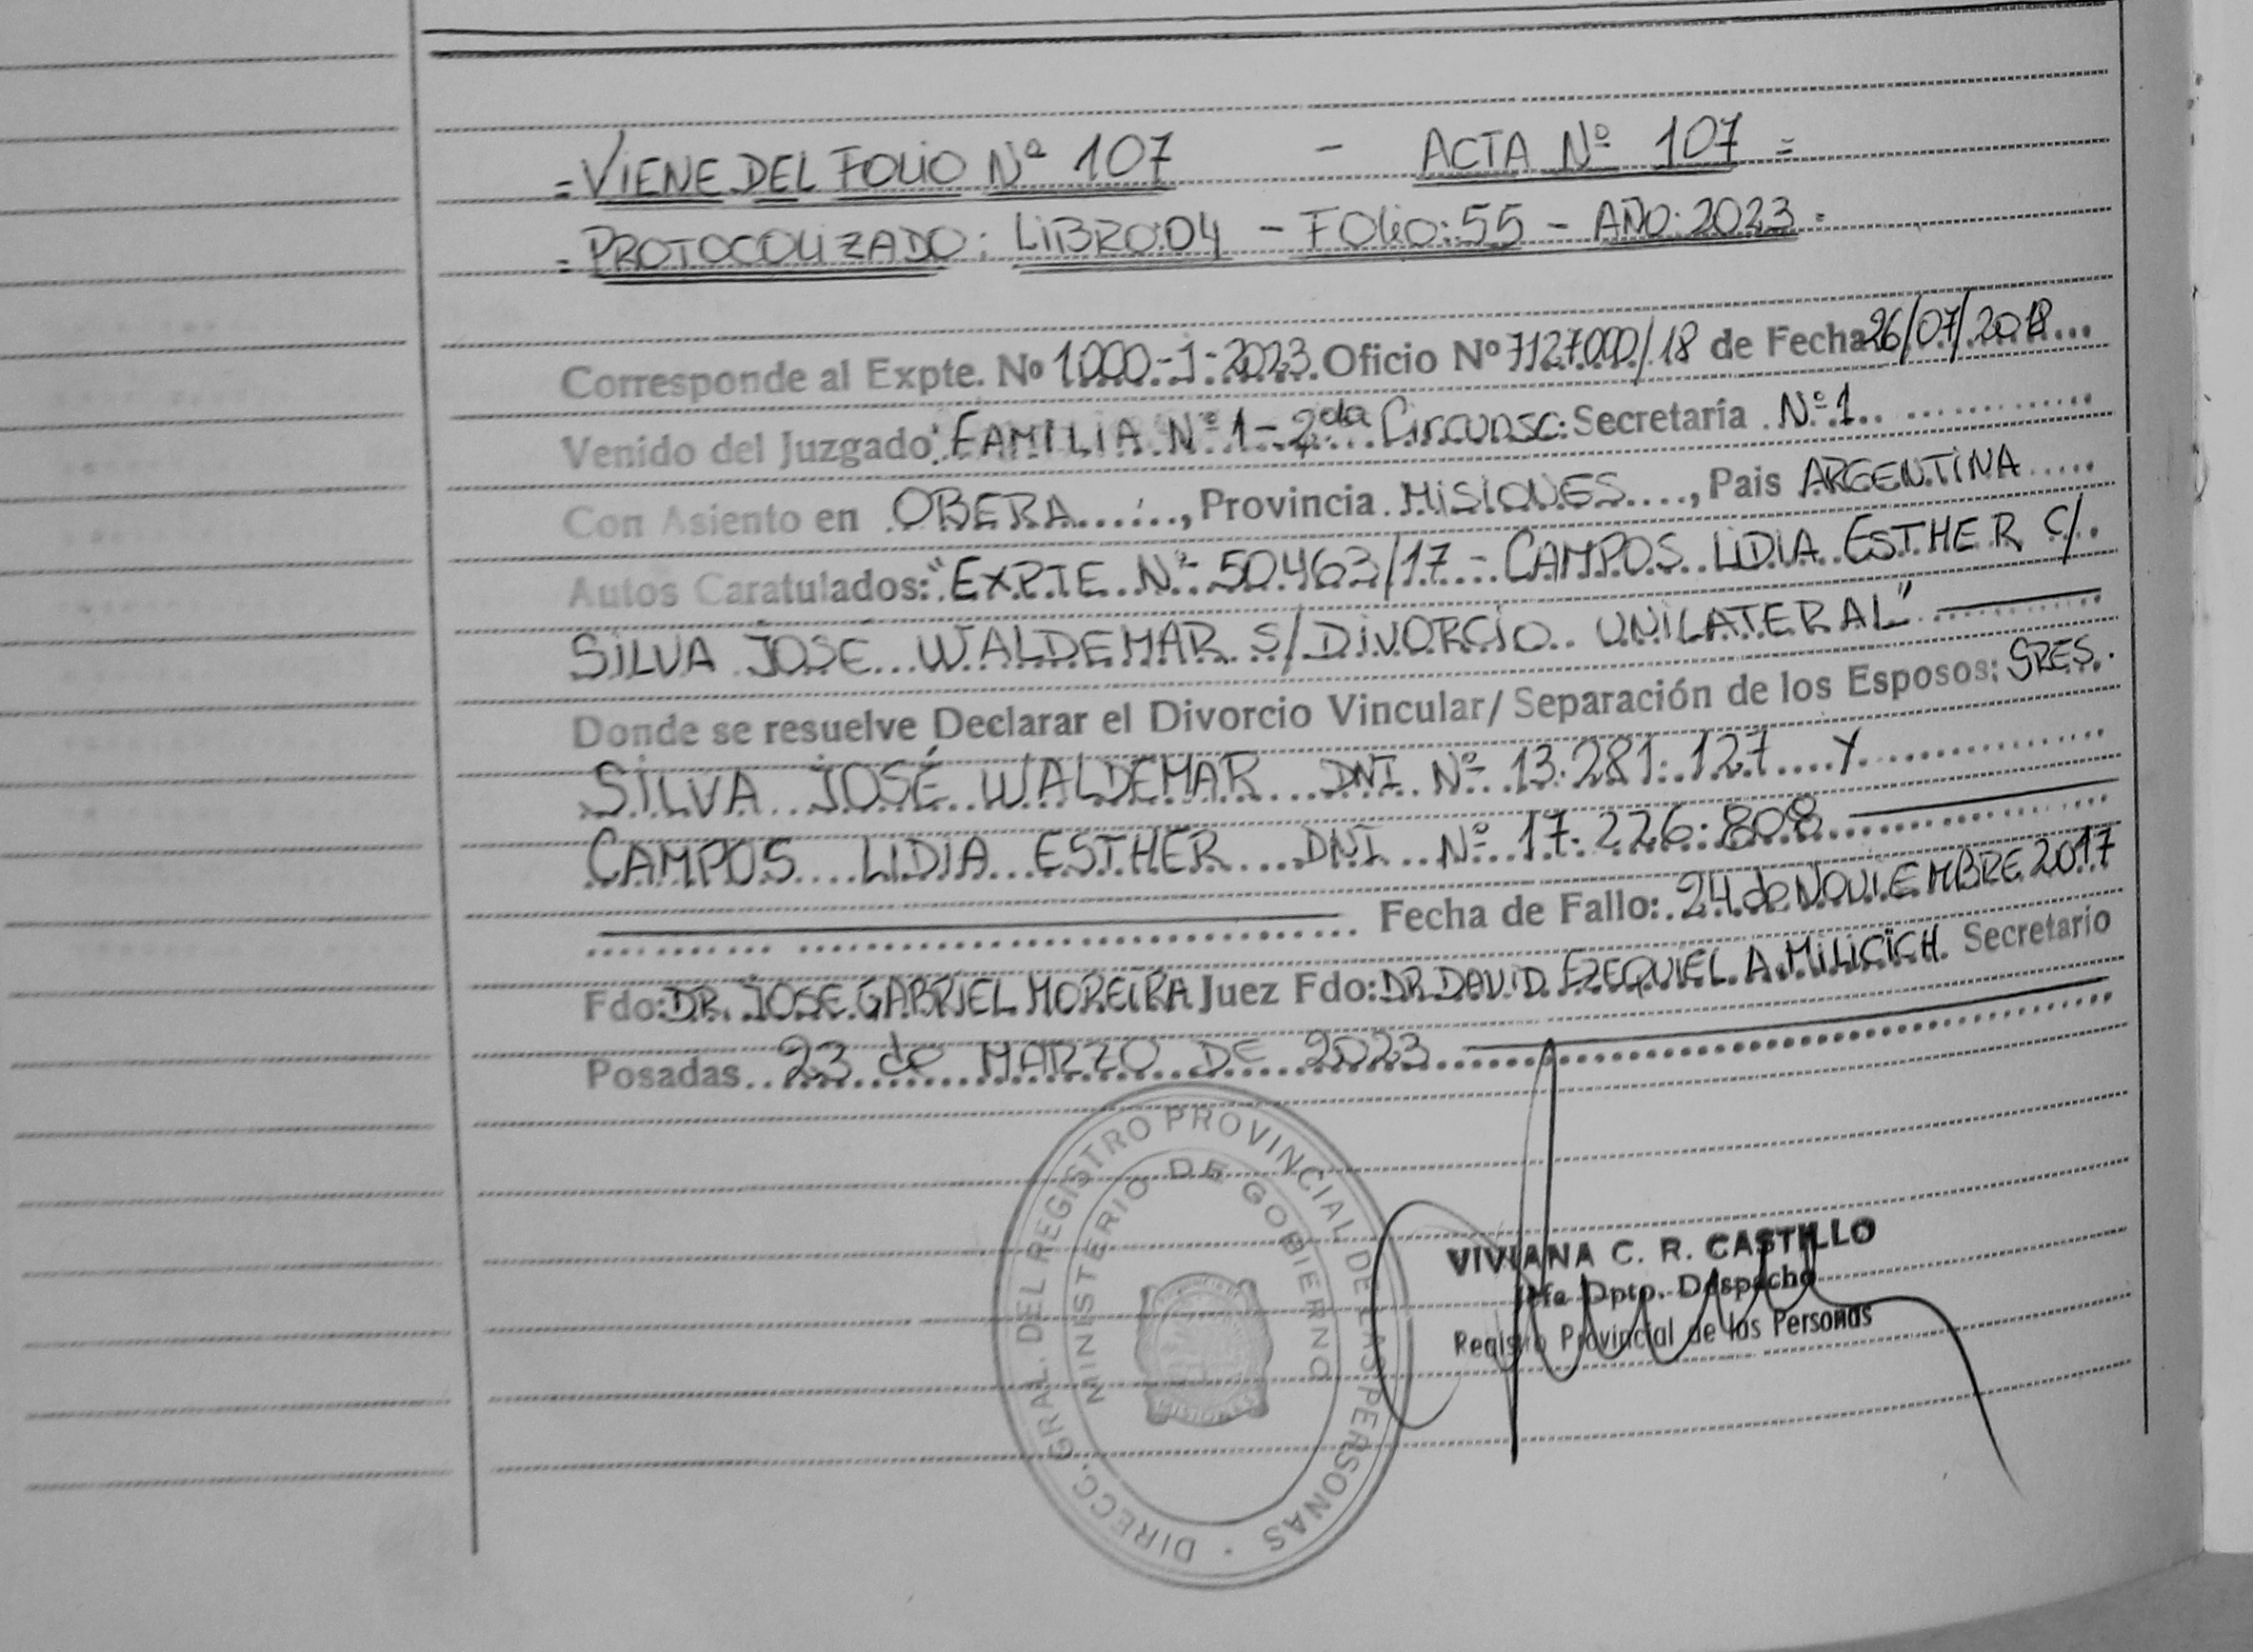 =VIENE DEL FOLIO Nº 107 - ACTA Nº 107=
=PROTOCOLIZADO: LIBRO:04 - FOLIO:55 - AÑO:2023=
Corresponde al Expte. Nº 1000-1-2023. Oficio Nº 7127000/18 de Fecha 26/07/2018...
Venido del Juzgado: FAMILIA Nº 1-2da Circunsc: Secretaría Nº 1..
Con Asiento en OBERA......, Provincia MISIONES...., Pais ARGENTINA.....
Autos Caratulados: "EXPTE Nº 50.463/17 - CAMPOS LIDIA ESTHER C/.
SILVA JOSÉ WALDEMAR S/DIVORCIO UNILATERAL"
Donde se resuelve Declarar el Divorcio Vincular/Separación de los Esposos: SRES.
SILVA JOSÉ WALDEMAR DNI Nº 13.281.127 Y
CAMPOS LIDIA ESTHER DNI Nº 17.226.808
Fecha de Fallo: 24 de NOVIEMBRE 2017
Fdo: DR. JOSE GABRIEL MOREIRA Juez Fdo: DR DAVID EZEQUIEL A. MILICICH Secretario
Posadas 23 de MARZO DE 2023
DIRECC. GRAL. DEL REGISTRO PROVINCIAL DE LAS PERSONAS
MINISTERIO DE GOBIERNO
MISIONES
VIVIANA C. R. CASTILLO
Jefa Dpto. Despacho
Registro Provincial de las Personas